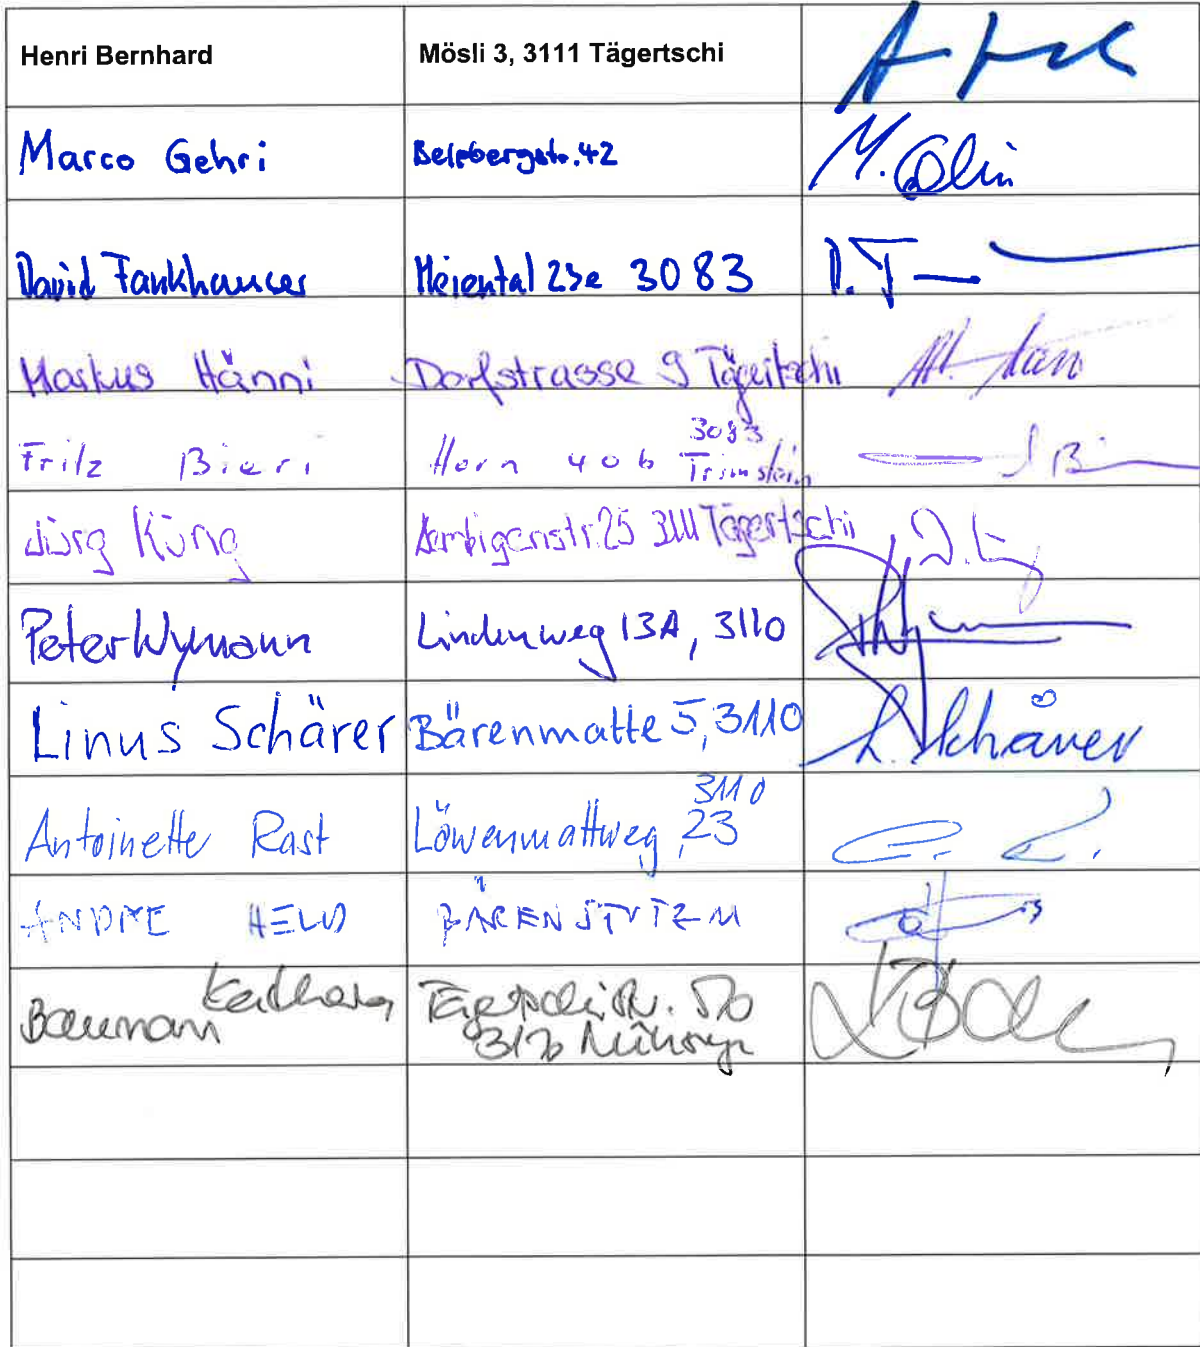 Henri Bernhard Mösli 3, 3111 Tägertschi
Marco Gehri Belpbergstr. 42 M. Gehri
David Fankhauser Meiental 23e 3083 D. F
Markus Hänni Dorfstrasse 9 Tägertschi
3083
Fritz Bieri Horn 406 Trimstein
Jürg Küng 25 3111 Tägertschi
Peter Wymann Lindenweg 13A, 3110
Linus Schärer Bärenmatte 5, 3110 L. Schärer
3110
Antoinette Rast Löwenmattweg, 23
ANDRE HELD BÄRENSTUTZ
Katharina
Baumann